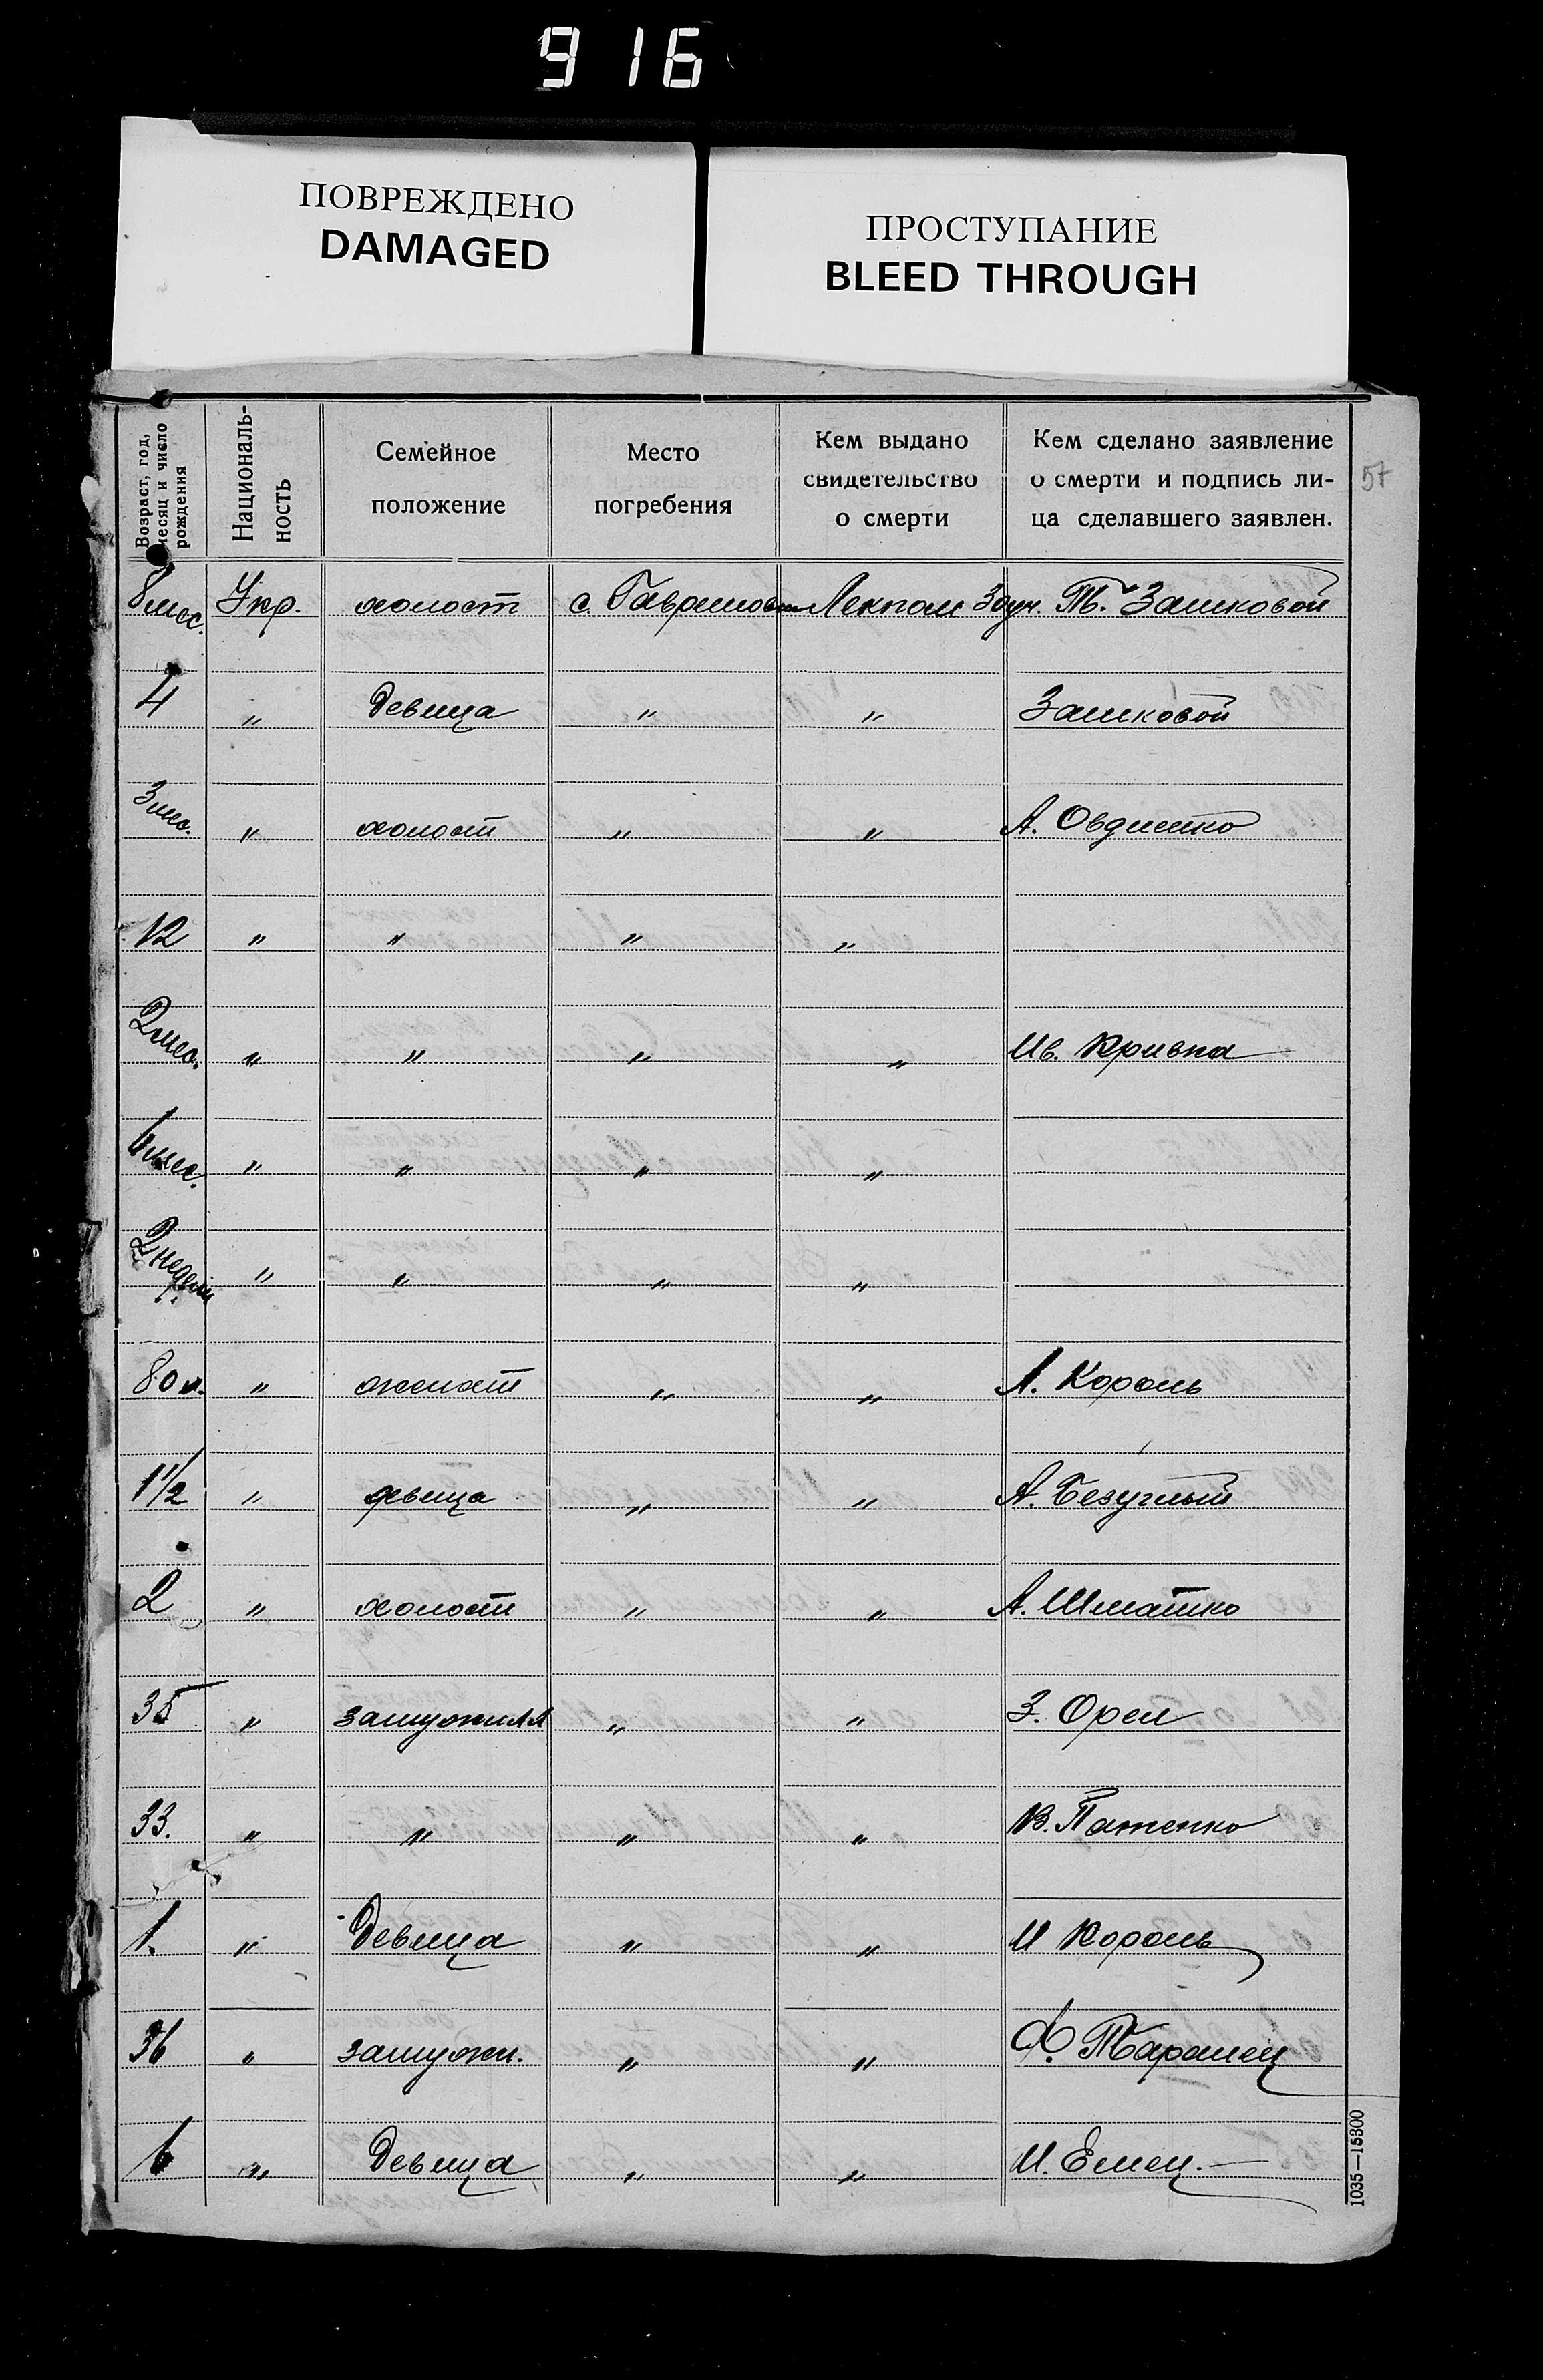 916
ПОВРЕЖДЕНО
DAMAGED
ПРОСТУПАНИЕ
BLEED THROUGH
Возраст, год,
месяц и число
рождения
Националь-
ность
Семейное
положение
Место
погребения
Кем выдано
свидетельство
о смерти
Кем сделано заявление
о смерти и подпись ли-
ца сделавшего заявлен.
57
8 мес. Укр. холост с. Лекпом Зауч. Т. Зашковой
4 " девица " " Зашковой
3 мес. " холост " " А. Овдиенко
12 " " " "
2 мес. " " " " Ив. Кривка
6 мес. " " " "
2 недели " " " "
80 л. " женат " " Л. Король
1 1/2 " девица " " А. Безуглый
2 " холост " " А. Шматко
35 " замужняя " " З. Орел
33. " " " " В. Патенко
1. " Девица " " И Король
36 " замужн. " " Ф. Таранец
6 " Девица " " И. Емец.
1035—15300